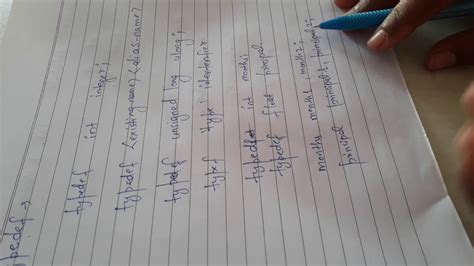 typedef →
typedef int integer;
typedef <existing-name> <alias-name>
typedef unsigned long ulong;
typef type identifier
typedef int months;
typedef float principal
months month1, month2;
principal principal1, principal2;